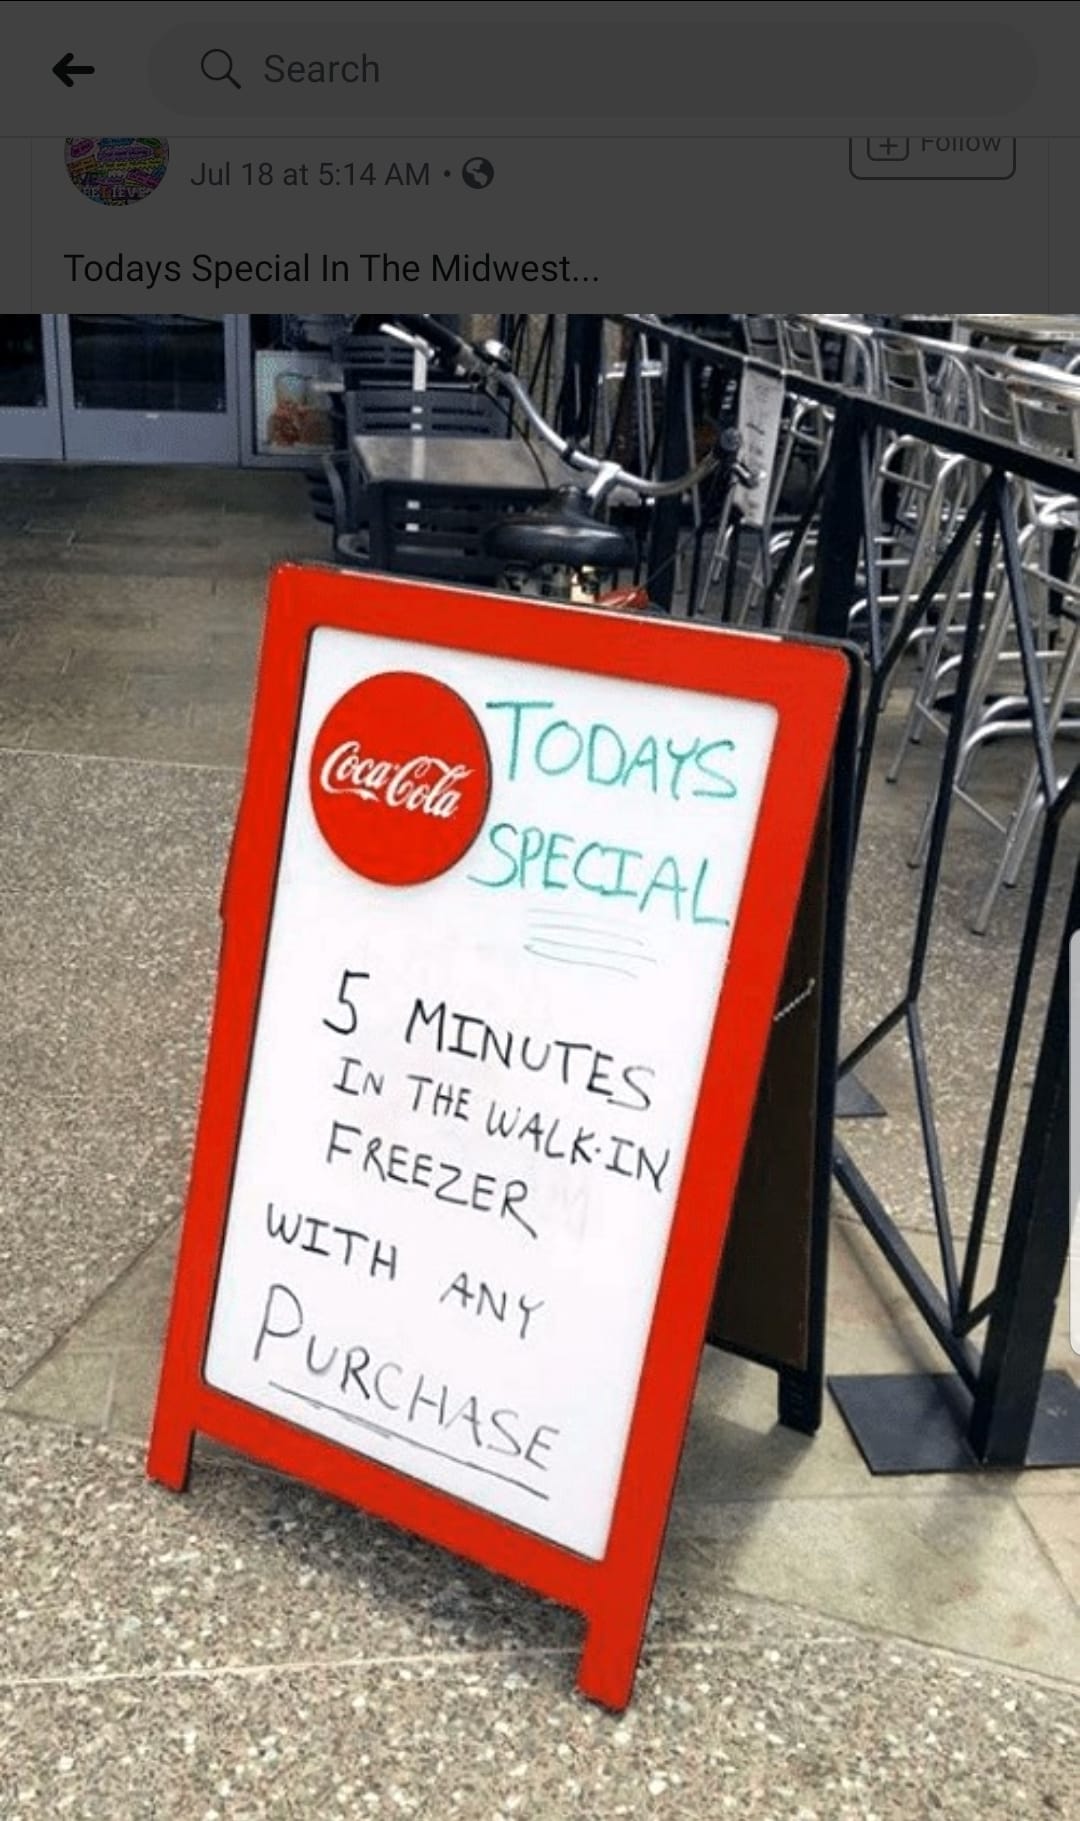 Search
Jul 18 at 5:14 AM
Follow
BELIEVE
Todays Special In The Midwest...
Coca-Cola
TODAYS
SPECIAL
5 MINUTES
IN THE WALK-IN
FREEZER
WITH ANY
PURCHASE